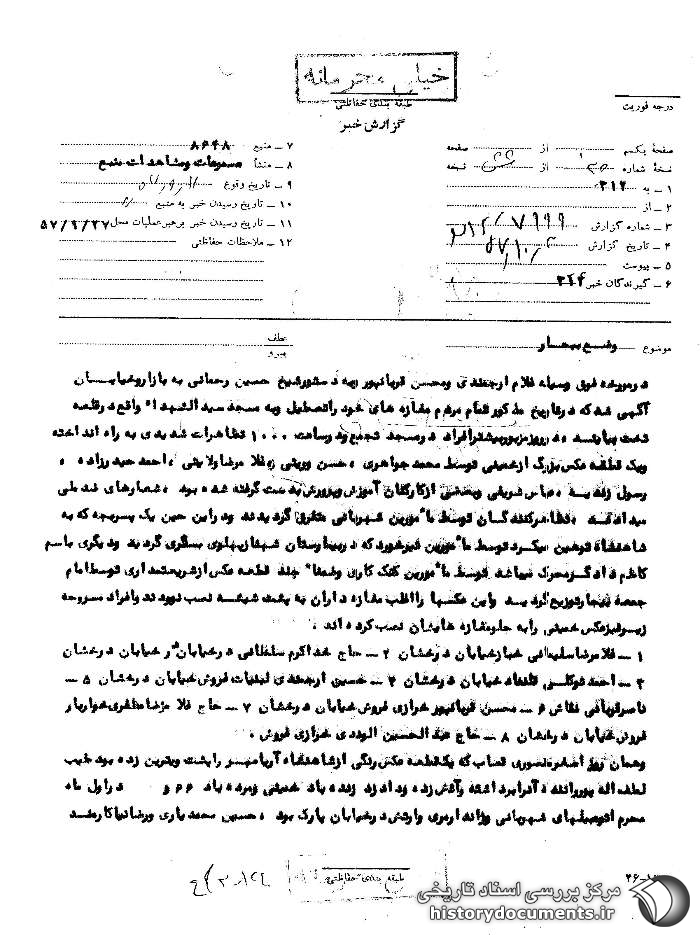 خیلی محرمانه
طبقه بندی حفاظتی
گزارش خبر
درجه فوریت
صفحه یکم از صفحه
نسخه شماره از نسخه
۱ – به ۳۱۲
۲ – از
۳ – شماره گزارش ۳۱۲/۷۹۹۹
۴ – تاریخ گزارش ۵۷/۱۰/۴
۵ – پیوست
۶ – گیرندگان خبر ۳۲۴
۷ – منبع ۸۶۴۸
۸ – منشأ مسموعات و مشاهدات منبع
۹ – تاریخ وقوع
۱۰ – تاریخ رسیدن خبر به منبع
۱۱ – تاریخ رسیدن خبر برهبر عملیات محل ۵۷/۹/۲۷
۱۲ – ملاحظات حفاظتی
موضوع وضع بیجار
عطف
پیرو
در مورخه فوق وسیله غلام ارجمندی ومحسن قربانپور وبه دستور شیخ حسین رحمانی به بازار وخیابان
آگهی شد که در تاریخ مذکور تمام مردم مغازه های خود را تعطیل وبه مسجد سیدالشهداء واقع در قلعه
تخت بیایند در روز مزبور بیشتر افراد در مسجد تجمع ودر ساعت ۱۰۰۰ تظاهرات شدیدی به راه انداخته
ویک قطعه عکس بزرگ از خمینی توسط محمد جواهری ، حسن ورپشتی و غلامرضا ولایتی ، احمد حیدرزاده ،
رسول ، عباس شریفی وبخشی از کارکنان آموزش وپرورش بدست گرفته شده بود ، شعارهای ضد ملی
میدادند ، تظاهرکنندگان توسط مأمورین شهربانی متفرق گردیدند ودر این حین یک پسربچه که به
شاهنشاه توهین میکرد توسط مأمورین تیر خورد که در بیمارستان شهناز پهلوی بستری گردید ودیگری باسم
کاظم دادگر محرک میباشد توسط مأمورین کتک کاری وضمنا" چند قطعه عکس از شریعتمداری توسط امام
جمعه بیجار توزیع گردید واین عکسها را اغلب مغازه داران به پشت شیشه نصب نمودند وافراد مشروحه
زیر نیز عکس خمینی را به جلو مغازه هایشان نصب کرده اند ،
۱ – غلامرضا سلیمانی خباز خیابان درخشان ۲ – حاج خداکرم سلطانی در خیابان خیابان درخشان
۳ – احمد توکلی قناد خیابان درخشان ۴ – حسین ارجمندی لبنیات فروش خیابان درخشان ۵ –
ناصر قربانی نقاش ۶ – محسن قربانپور خرازی فروش خیابان درخشان ۷ – حاج غلامرضا مظفری خواربار
فروش خیابان درخشان ۸ – حاج عبدالحسین الوندی خرازی فروش ،
وهمان روز اصغر منصوری قصاب که یک قطعه عکس رنگی از شاهنشاه آریامهر را پشت ویترین زده بود
لطف اله آنرا برداشته وآتش زده و داد زد زنده باد خمینی ومرده باد ۶۶ و در اول ماه
محرم اتومبیلهای شهربانی وژاندارمری وارتش در خیابان پارک بود ، حسین محمدیاری ورضا نیا کارمند
طبقه بندی حفاظتی
مرکز بررسی اسناد تاریخی
historydocuments.ir